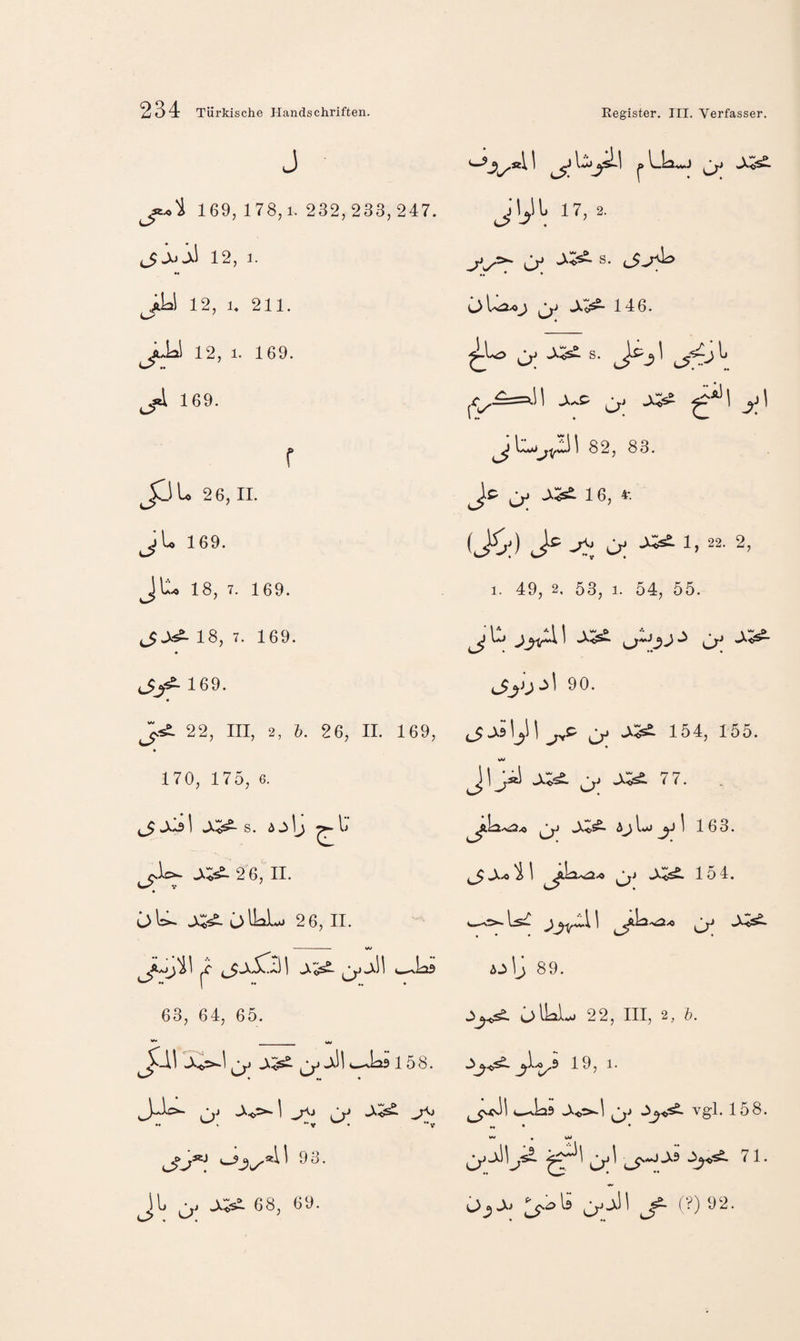 234 Türkische Handschriften. Register. III. Verfasser.
ل
لامعى 169, 178, 1. 232, 233, 247.
12, 1.
لطفى 12, 1. 211.
لطيفى 12, 1. 169.
169.
م
مالكى 26, II.
مالى 169.
مثالى 18, 7. 169.
مجدى 18, 7. 169.
محوى 169.
22, III, 2, b. 26, II. 169,
170, 175, 6.
محمد افندى s. تاج زاده
محمد چلبى 26, II.
سلطان محمد خان 26, II.
قطب الدين محمد النكدى ثم الازنيقى
63, 64, 65.
قطب الدين محمد بن احمد المكى 158.
پير محمد بن پير احمد بن خليل
المعروف 93.
محمد بن بالى 68, 69.
محمد بن بسطام الخوشابى المعروف
بالوانى 17, 2.
محمد بن جرير s. طبرى
محمد بن رمضان 146.
محمد بن صالح s. يازيجى اوغلى
ابو الفتح محمد بن عبد الكريم
الشهرستانى 82, 83.
محمد بن على 16, 4.
محمد بن پير على (بركلى) 1, 22. 2,
1. 49, 2. 53, 1. 54, 55.
محمد بن درويش محمد المشهور
ادرنوى 90.
محمد بن عمر الواقدى 154, 155.
محمد بن محمد الغزالى 77.
ابو محمد بن مصطفى 163.
محمد بن مصطفى الامدى 154.
محمد بن مصطفى المشهور بحاجب
زاده 89.
سلطان محمود 22, III, 2, b.
محمود 19, 1.
محمود بن احمد قطب vgl. 158.
محمود قدسى ابن الشيخ فخر الدين 71.
محى الدين قاضى بدون (?) 92.